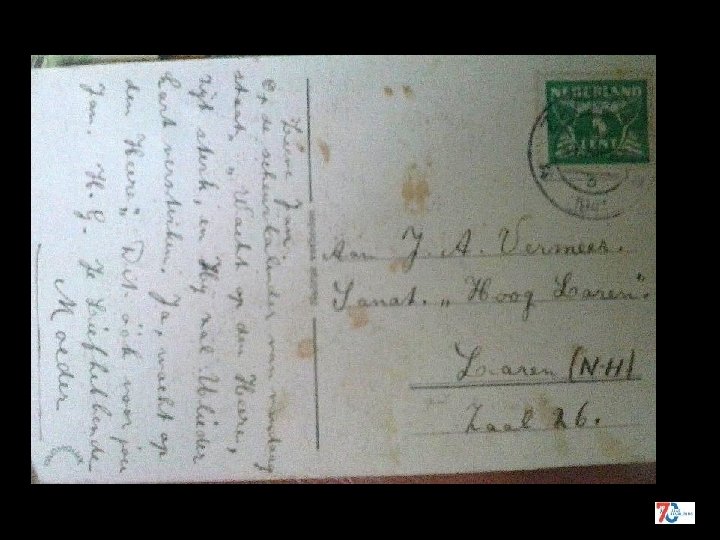 Lieve Jan.
Op de scheurkalender van vandaag
staat. „Wacht op den Heere,
zijt sterk, en Hij zal Ulieder
hart versterken. Ja, wacht op
den Heere." Dit ook voor jou
Jan. H.G. Je Liefhebbende
Moeder
NEDERLAND
CENT
Aan J. A. Vermeer.
Sanat. „Hoog Laren".
Laren (N-H)
Zaal 26.